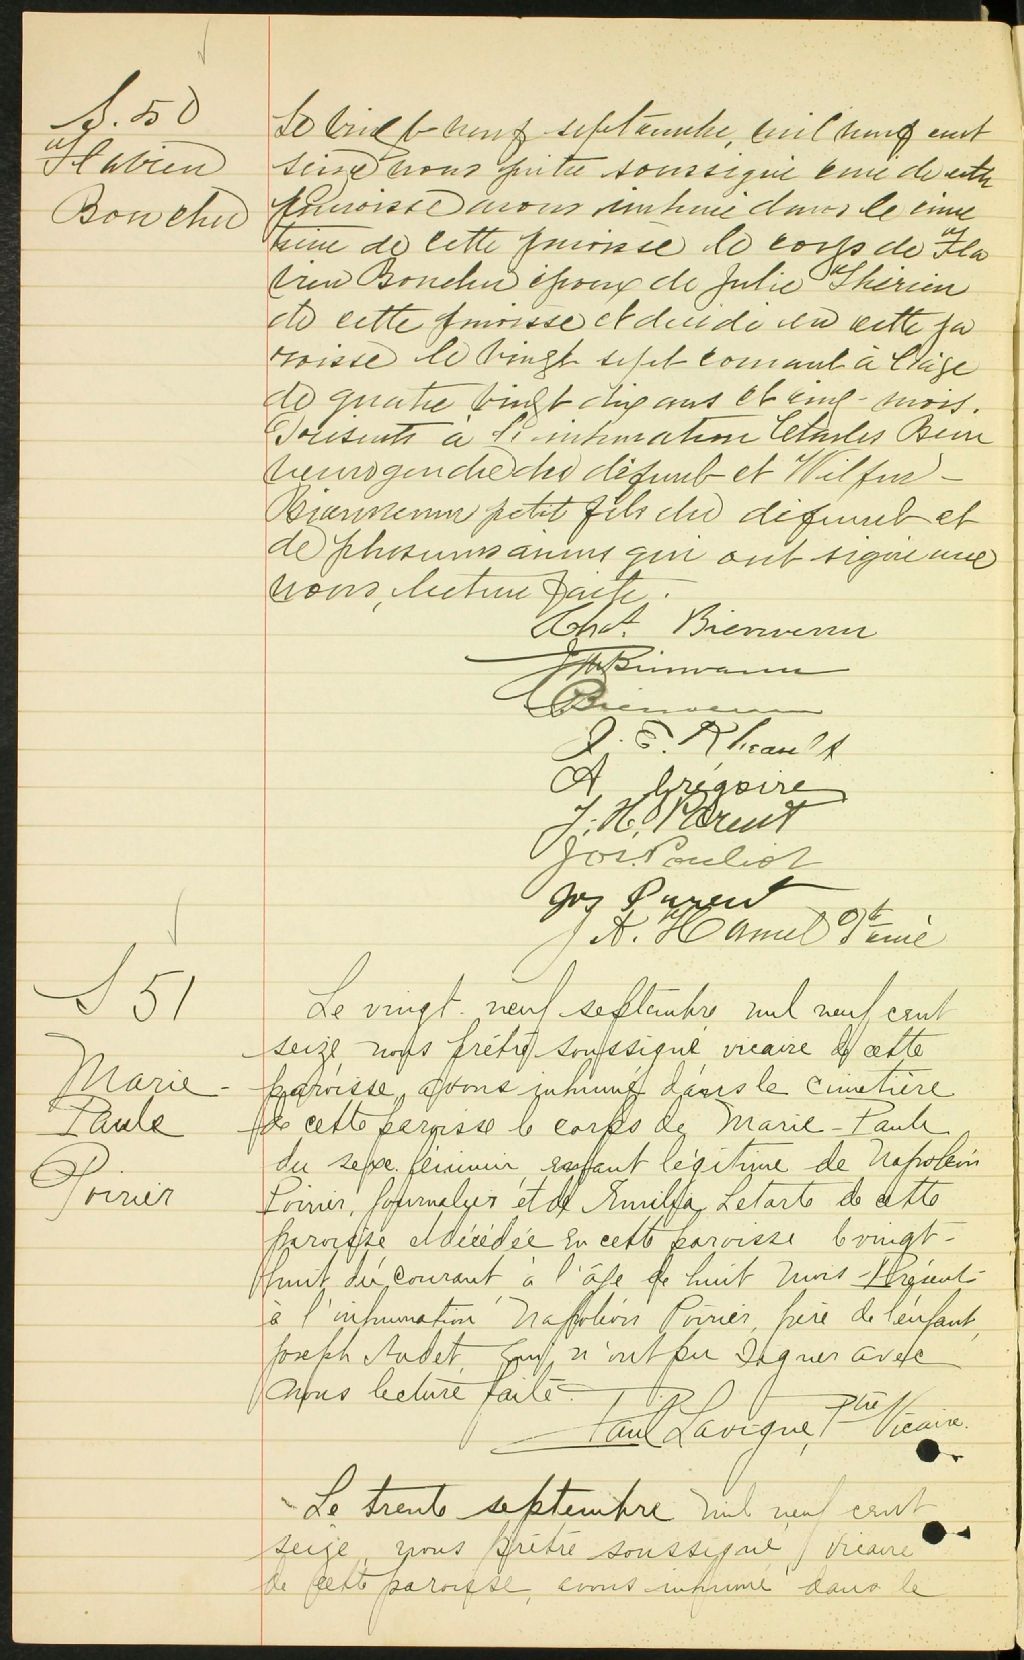 S. 50
Flavien
Boucher
Le vingt-neuf septembre, mil neuf cent
seize nous prêtre soussigné curé de cette
paroisse avons inhumé dans le cime
tière de cette paroisse le corps de Fla
vien Boucher époux de Julie Thérien
de cette paroisse et décédé en cette pa
roisse le vingt sept courant à l'âge
de quatre vingt dix ans et cinq mois.
Présents à l'inhumation Charles Bien
venu gendre du défunt et Wilfrid
Bienvenu petit fils du défunt et
de plusieurs amis qui ont signé avec
nous, lecture faite.
Chs. Bienvenu
Bienvenu
Bienvenu
J. E. Rheault
A Grégoire
J. H. Parent
Jos. Pouliot
Jos Parent
J. A. Hamel Ptre curé
S 51
Marie-
Paule
Poirier
Le vingt-neuf septembre mil neuf cent
seize nous prêtre soussigné vicaire de cette
paroisse, avons inhumé dans le cimetière
de cette paroisse le corps de Marie-Paule
du sexe féminin, enfant légitime de Napoléon
Poirier, journalier et de Emilia Letarte de cette
paroisse et décédée en cette paroisse le vingt-
huit du courant à l'âge de huit mois - Présents
à l'inhumation Napoléon Poirier, père de l'enfant,
Joseph Audet, qui n'ont pu signer avec
nous lecture faite.
Paul Lavigne, Ptre Vicaire.
Le trente septembre mil neuf cent
seize, nous prêtre soussigné, vicaire
de cette paroisse, avons inhumé dans le